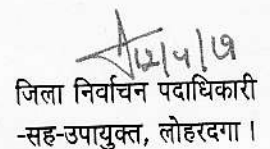 12/4/19
जिला निर्वाचन पदाधिकारी
-सह-उपायुक्त, लोहरदगा ।